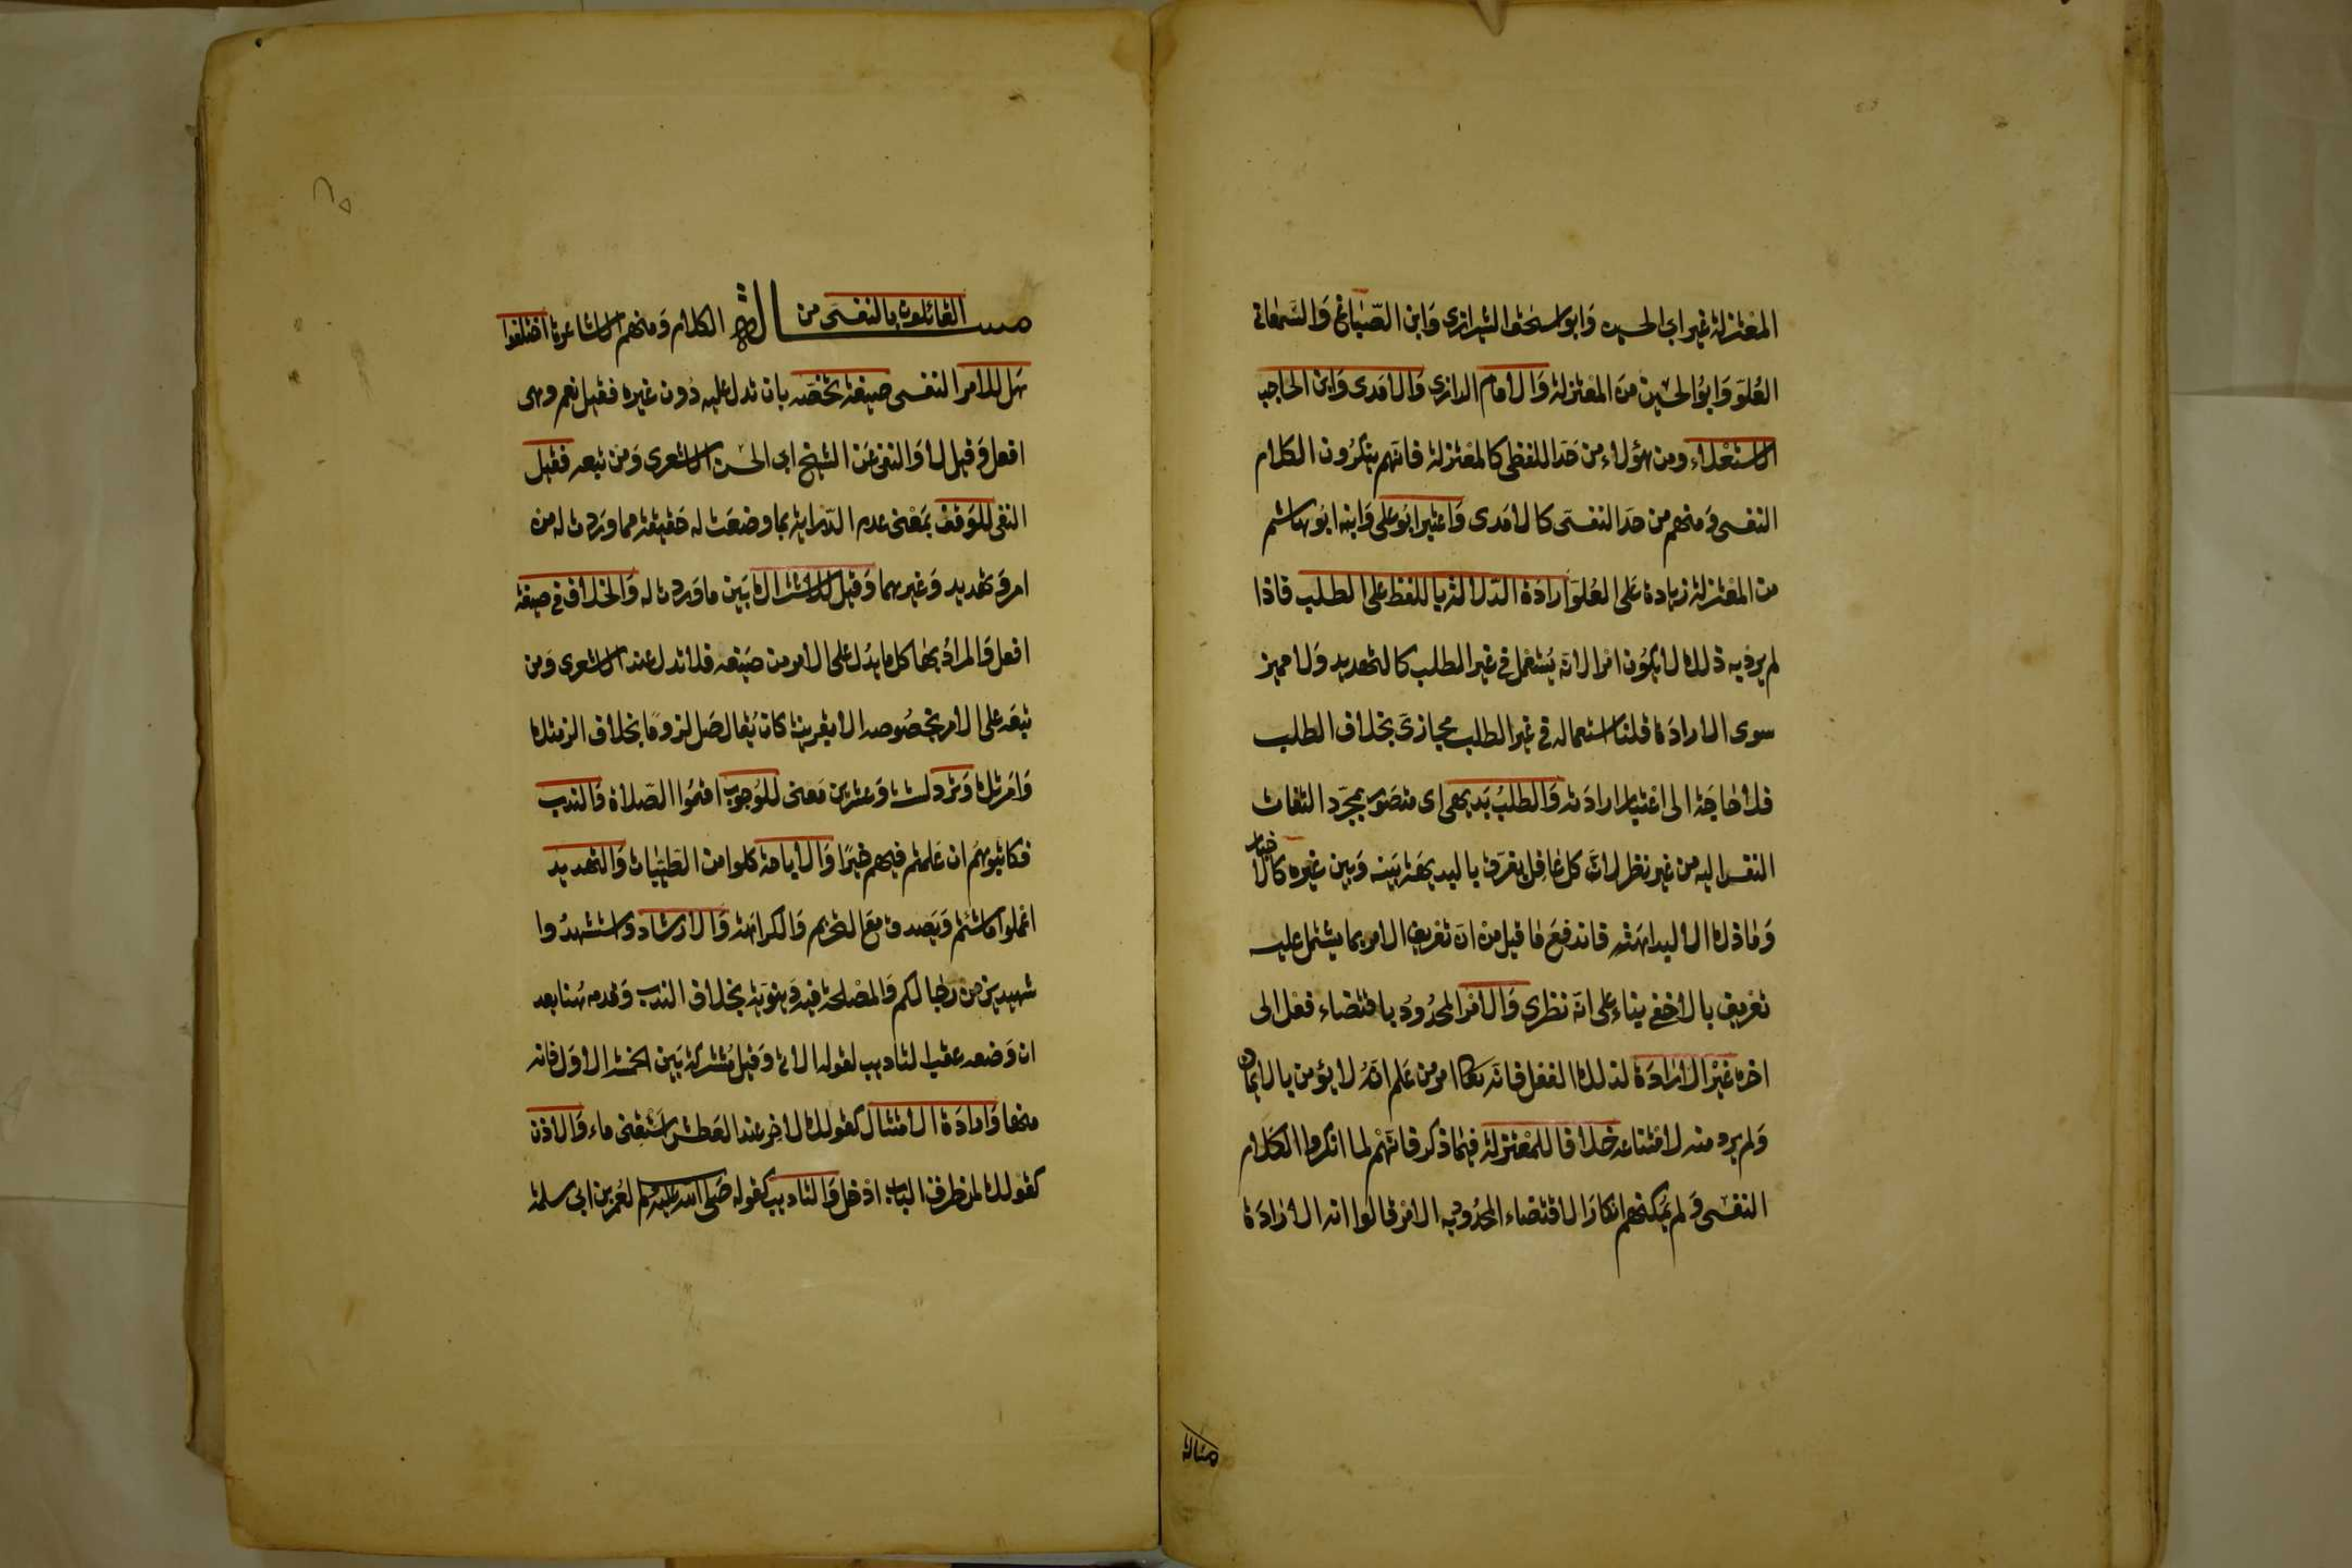 المعتزلة غير ابي الحسين وابو اسحق الشيرازي وابن الصباغ والسمعاني
العلو وابو الحسين من المعتزلة والامام الرازي والامدي وابن الحاجب
الاستعلاء ومن هؤلاء من حد اللفظي كالمعتزلة فانهم ينكرون الكلام
النفسي ومنهم من حد النفسي كالامدي واعتبر ابو علي وابنه ابو هاشم
من المعتزلة زيادة على العلو ارادة الدلالة باللفظ على الطلب فاذا
لم يرد به ذلك لا يكون امرا لانه يستعمل في غير الطلب كالتهديد ولا مميز
سوى الارادة قلنا استعماله في غير الطلب مجازي بخلاف الطلب
فلا حاجة الى اعتبار ارادته والطلب بديهي اي متصور بمجرد التفات
النفس اليه من غير نظر لان كل عاقل يفرق بالبديهة بينه وبين غيره كالاخبار
وما ذلك الا لبداهته فاندفع ما قيل من ان تعريف الامر بما يشتمل عليه
تعريف بالاخفى بناء على انه نظري والامر المحدود باقتضاء فعل الى
اخره غير الارادة لذلك الفعل فانه تعالى امر من علم انه لا يؤمن بالايمان
ولم يرد منه لامتناعه خلافا للمعتزلة فيما ذكر فانهم لما انكروا الكلام
النفسي ولم يمكنهم انكار الاقتضاء المحدود به الامر قالوا انه الارادة
مسالة
مسالة القائلون بالنفسي من الكلام ومنهم الاشاعرة اختلفوا
هل للامر النفسي صيغة تخصه بان تدل عليه دون غيره فقيل نعم وهي
افعل وقيل لا والنفي عن الشيخ ابي الحسن الاشعري ومن تبعه فقيل
النفي للوقف بمعنى عدم الدراية بما وضعت له حقيقة مما وردت له من
امر وتهديد وغيرهما وقيل للاشتراك بين ما وردت له والخلاف في صيغة
افعل والمراد بها كل ما يدل على الامر من صيغه فلا تدل عند الاشعري ومن
تبعه على الامر بخصوصه الا بقرينة كان يقال صل لزوما بخلاف الزمتك
وامرتك وترد لستة وعشرين معنى للوجوب اقيموا الصلاة والندب
فكاتبوهم ان علمتم فيهم خيرا والاباحة كلوا من الطيبات والتهديد
اعملوا ما شئتم ويصدق مع التحريم والكراهة والارشاد واستشهدوا
شهيدين من رجالكم والمصلحة فيه دنيوية بخلاف الندب وقدمه هنا بعد
ان وضعه عقب التاديب لقوله الاتي وقيل مشتركة بين الخمسة الاول فانه
منها وارادة الامتثال كقولك لاخر عند العطش اسقني ماء والاذن
كقولك لمن طرق الباب ادخل والتاديب كقوله صلى الله عليه وسلم لعمر بن ابي سلمة